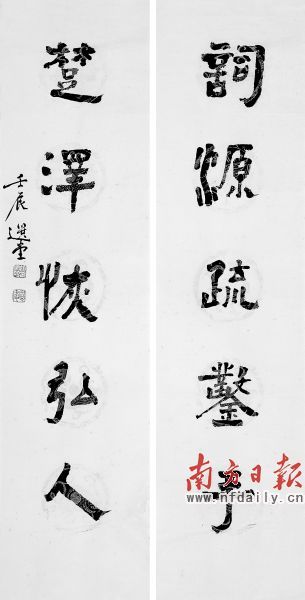 詞源疏鑿手
楚澤恢弘人
壬辰 選堂
南方日報
www.nfdaily.cn